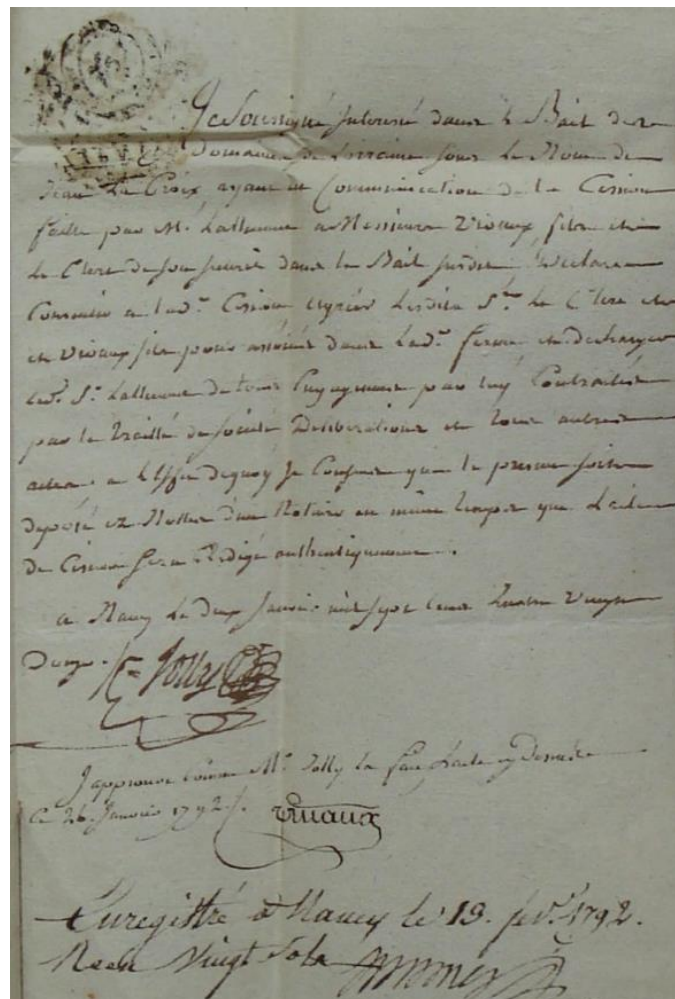 Je Soussigné interessé dans le Bail des
Domaines de Lorraine sous le Nom de
Jean La Croix ayant eu Communication de la Cession
faite par M. Lallemand a Messieurs Vivaux fils et
Le Clerc de son interêt dans le Bail susdit, Declare
Consentir a lad.e Cession agréer lesdits S.rs Le Clerc et
et Vivaux fils pour associés dans lad.e ferme et decharger
led. S.r Lallemand de tous Engagemens par luy Contractés
par le Traitté de société Deliberations et tous autres
actes. a l'Effet de quoy Je Consens que le present soit
deposé ez Nottes d'un Notaire en même temps que l'acte
de Cession sera Redigé authentiquement.
a Nancy le deux Janvier mil sept cent Quatre Vingt
Douze. Jolly
J'approuve comme Mr. Jolly la fait l'acte cy Dessus
Ce 26. Janvier 1792.
Vivaux
Enregistré à Nancy le 13. fev.r 1792.
Reçu Vingt Sols